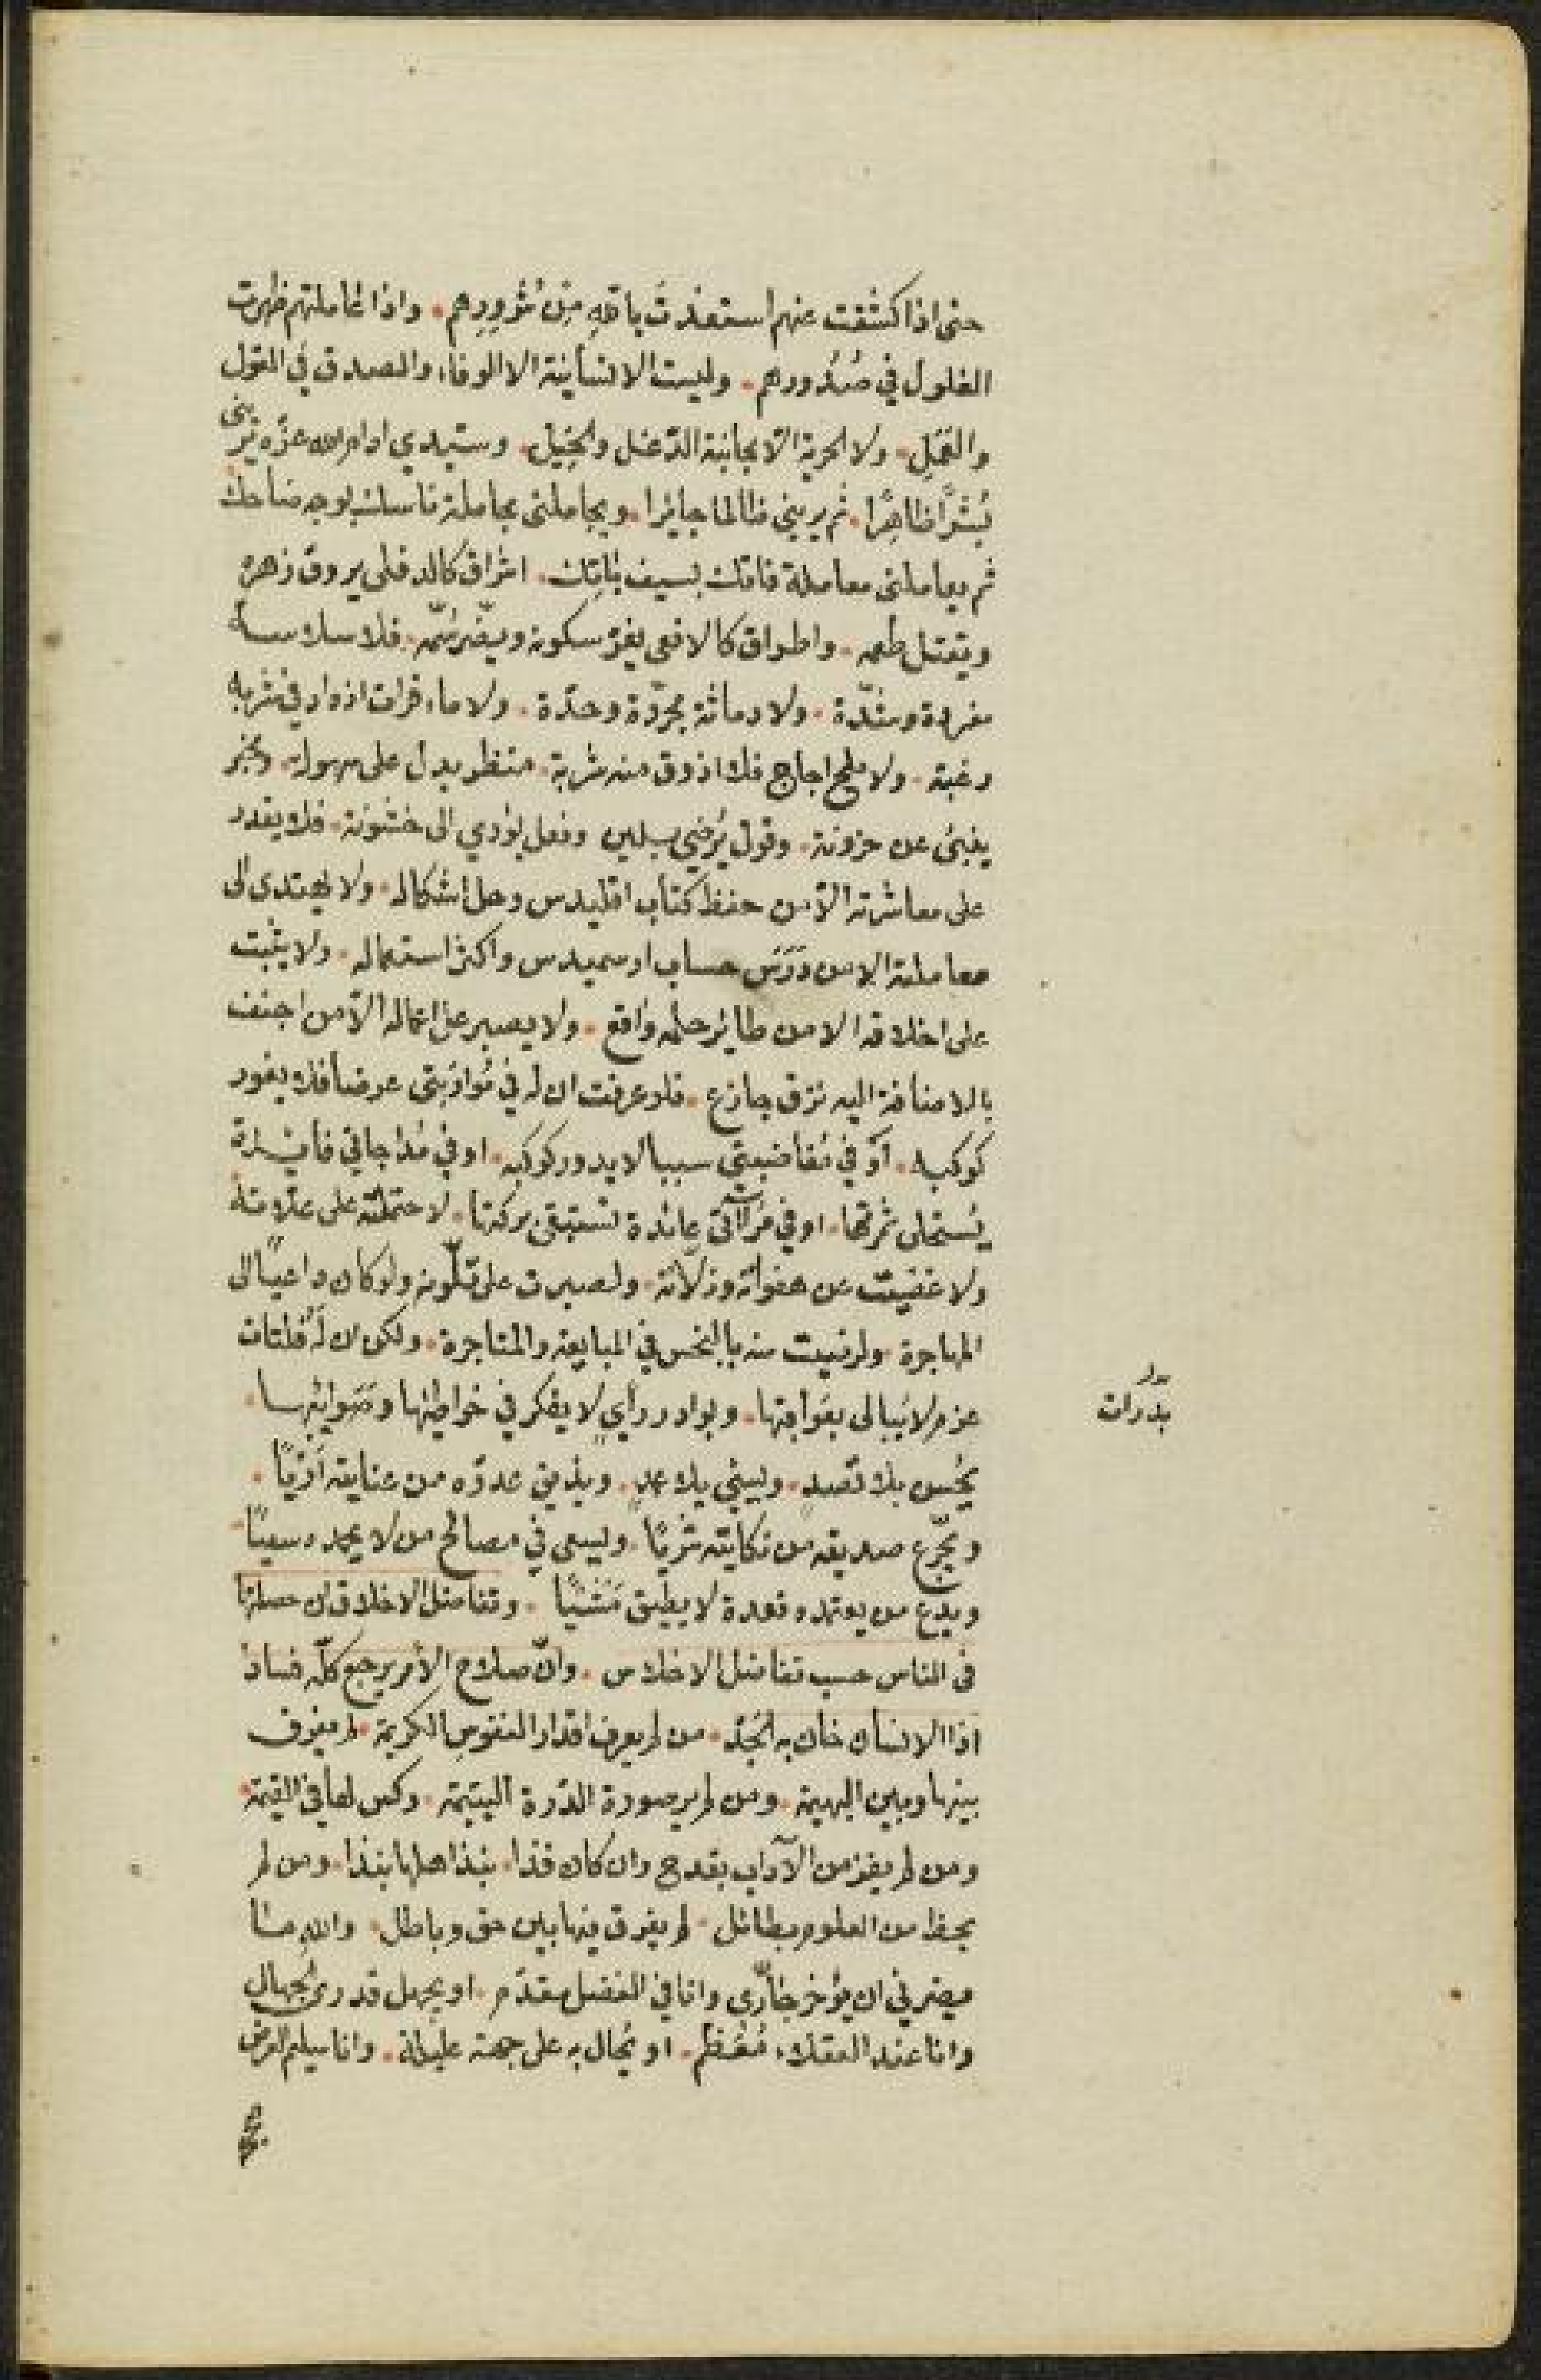 حتى اذا كشفت عنهم استعذت بالله من شرورهم . واذا عاملتهم ظهرت
الغلول في صُدُورهم . وليست الانسانية الا الوفاء والصدق في القول
والعَمَلِ . ولا الحرية الّا مجانبة الدّغل والحِيَل . وستبدي ادام الله عزّه يُريني
بُشرًا ظاهِرًا . ثم يريني ظالما جائرا . ويجاملنى مجاملة ناسك بوجه ضاحك
ثم يعاملنى معاملة فاتك بسيف باتك . اشراق كالدفلى يروق زهره
ويقتل طعمه . واطراق كالافعى يغرّ سكونه ويضّر سُمّه . فلا سلاسة
مفردة وشدّة . ولا دماثة مجرّدة وحدّة . ولا ماء فرات ازداد في شربه
رغبة . ولا ملح اجاج فلا اذوق منه شربة . منظر يدل على سهولة . ومخبر
ينبئ عن حزونة . وقول يُرضي بلين وفعل يؤدي الى خشونة . فلا يقدر
على معاشرته الّا من حفظ كتاب اقليدس وحل اشكاله . ولا يهتدى الى
معاملته الا من دَرَسَ حساب ارسميدس واكثر استعماله . ولا يثبت
على اخلاقه الا من طاير حلمه واقع . ولا يصبر على اعماله الّا من احنف
بالاضافة اليه نزق جازع . فلو عرفت ان له في مُواربتى عرضا فلا يغور
كوكبه . أوْ في مُغاضبتي سببا لا يدور كوكبه . او في مُداجاتي فائدة
يُستحلى ثمرتها . او في مُرااتي عائدة تستبقى بركتها . لاحتملته على علاته
ولاغضيت عن هفواته وزلّاته . ولصبرت على تلّونه ولو كان داعيًا الى
المهاجرة . ولرضيت منه بالبخس في المبايعة والمتاجرة . ولكن له فلتات
عزم لا يُبالى بعَواقبها . وبوادر رأيٍ لا يفكر في خواطئها وصَوائبها .
يُحْسن بلا قصدٍ . ويسئ بلا عمدٍ . ويذيق عدوّه من عنايته اَرْيًا .
ويجّرع صديقه من نكايته شَرْيًا . ويسعى في مصالح من لا يحمده سعيًا
ويدع من يعتمده قعدة لا يطيق مَشْيًا . وتفاضل الاخلاق ان حصلتها
فى الناس حسب تفاضل الاخلاص . وانّ صلاح الأمر يرجع كلّه فسادا
اذا الانسان خان به الجَدّ . من لم يعرف اقدار النفوس الكريمة . لم يفرق
بينها وبين البهيمة . ومن لم ير صورة الدّرة اليتيمة . وكس لها في القيمة
ومن لم يفز من الآداب بقدح وان كان فذا . نبذ اهلها نبذا . ومن لم
يحظ من العلوم بطائل . لم يفرق فيها بين حق وباطل . والله ما
يضرني ان يؤخر وانا في الفضل مقدّم . او يجهل قدري الجهال
وانا عند العقلاء مُعَظم . او يُحال به على جهة عليلة . وانا سليم العرض
بدرات